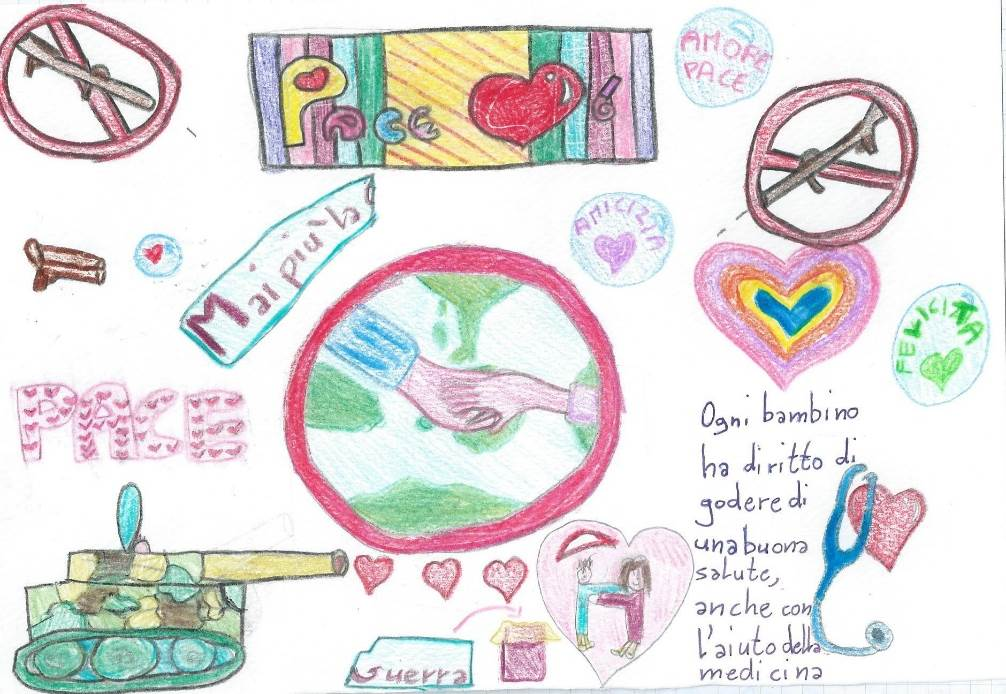 Pace
AMORE
PACE
Mai più la
AMICIZIA
FELICITA
PACE
Ogni bambino
ha diritto di
godere di
una buona
salute,
anche con
l'aiuto della
medicina
Guerra